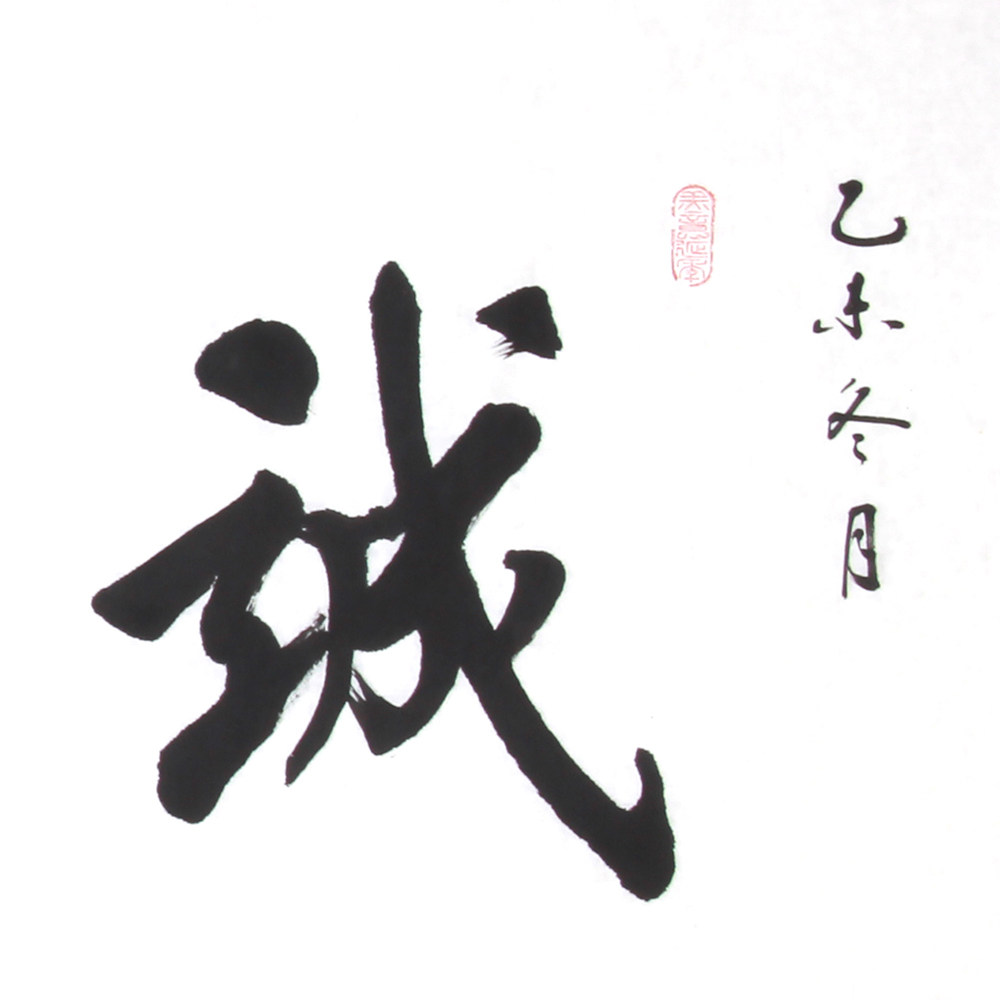 乙未冬月
誠